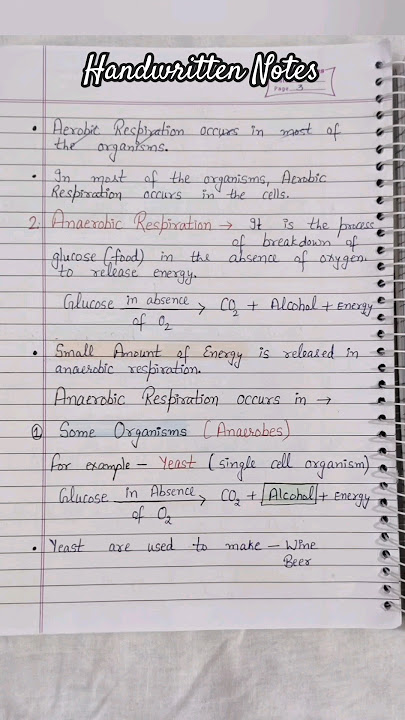 Handwritten Notes
Page 3
• Aerobic Respiration occurs in most of
the organisms.
• In most of the organisms, Aerobic
Respiration occurs in the cells.
2. Anaerobic Respiration → It is the process
of breakdown of
glucose (food) in the absence of oxygen
to release energy.
Glucose in absence of O₂ → CO₂ + Alcohol + Energy
• Small Amount of Energy is released in
anaerobic respiration.
Anaerobic Respiration occurs in →
① Some Organisms (Anaerobes)
for example – Yeast (single cell organism)
Glucose in Absence of O₂ → CO₂ + Alcohol + Energy
• Yeast are used to make – Wine
Beer